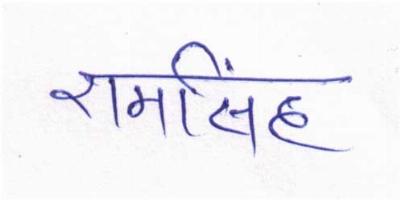 रामसिंह